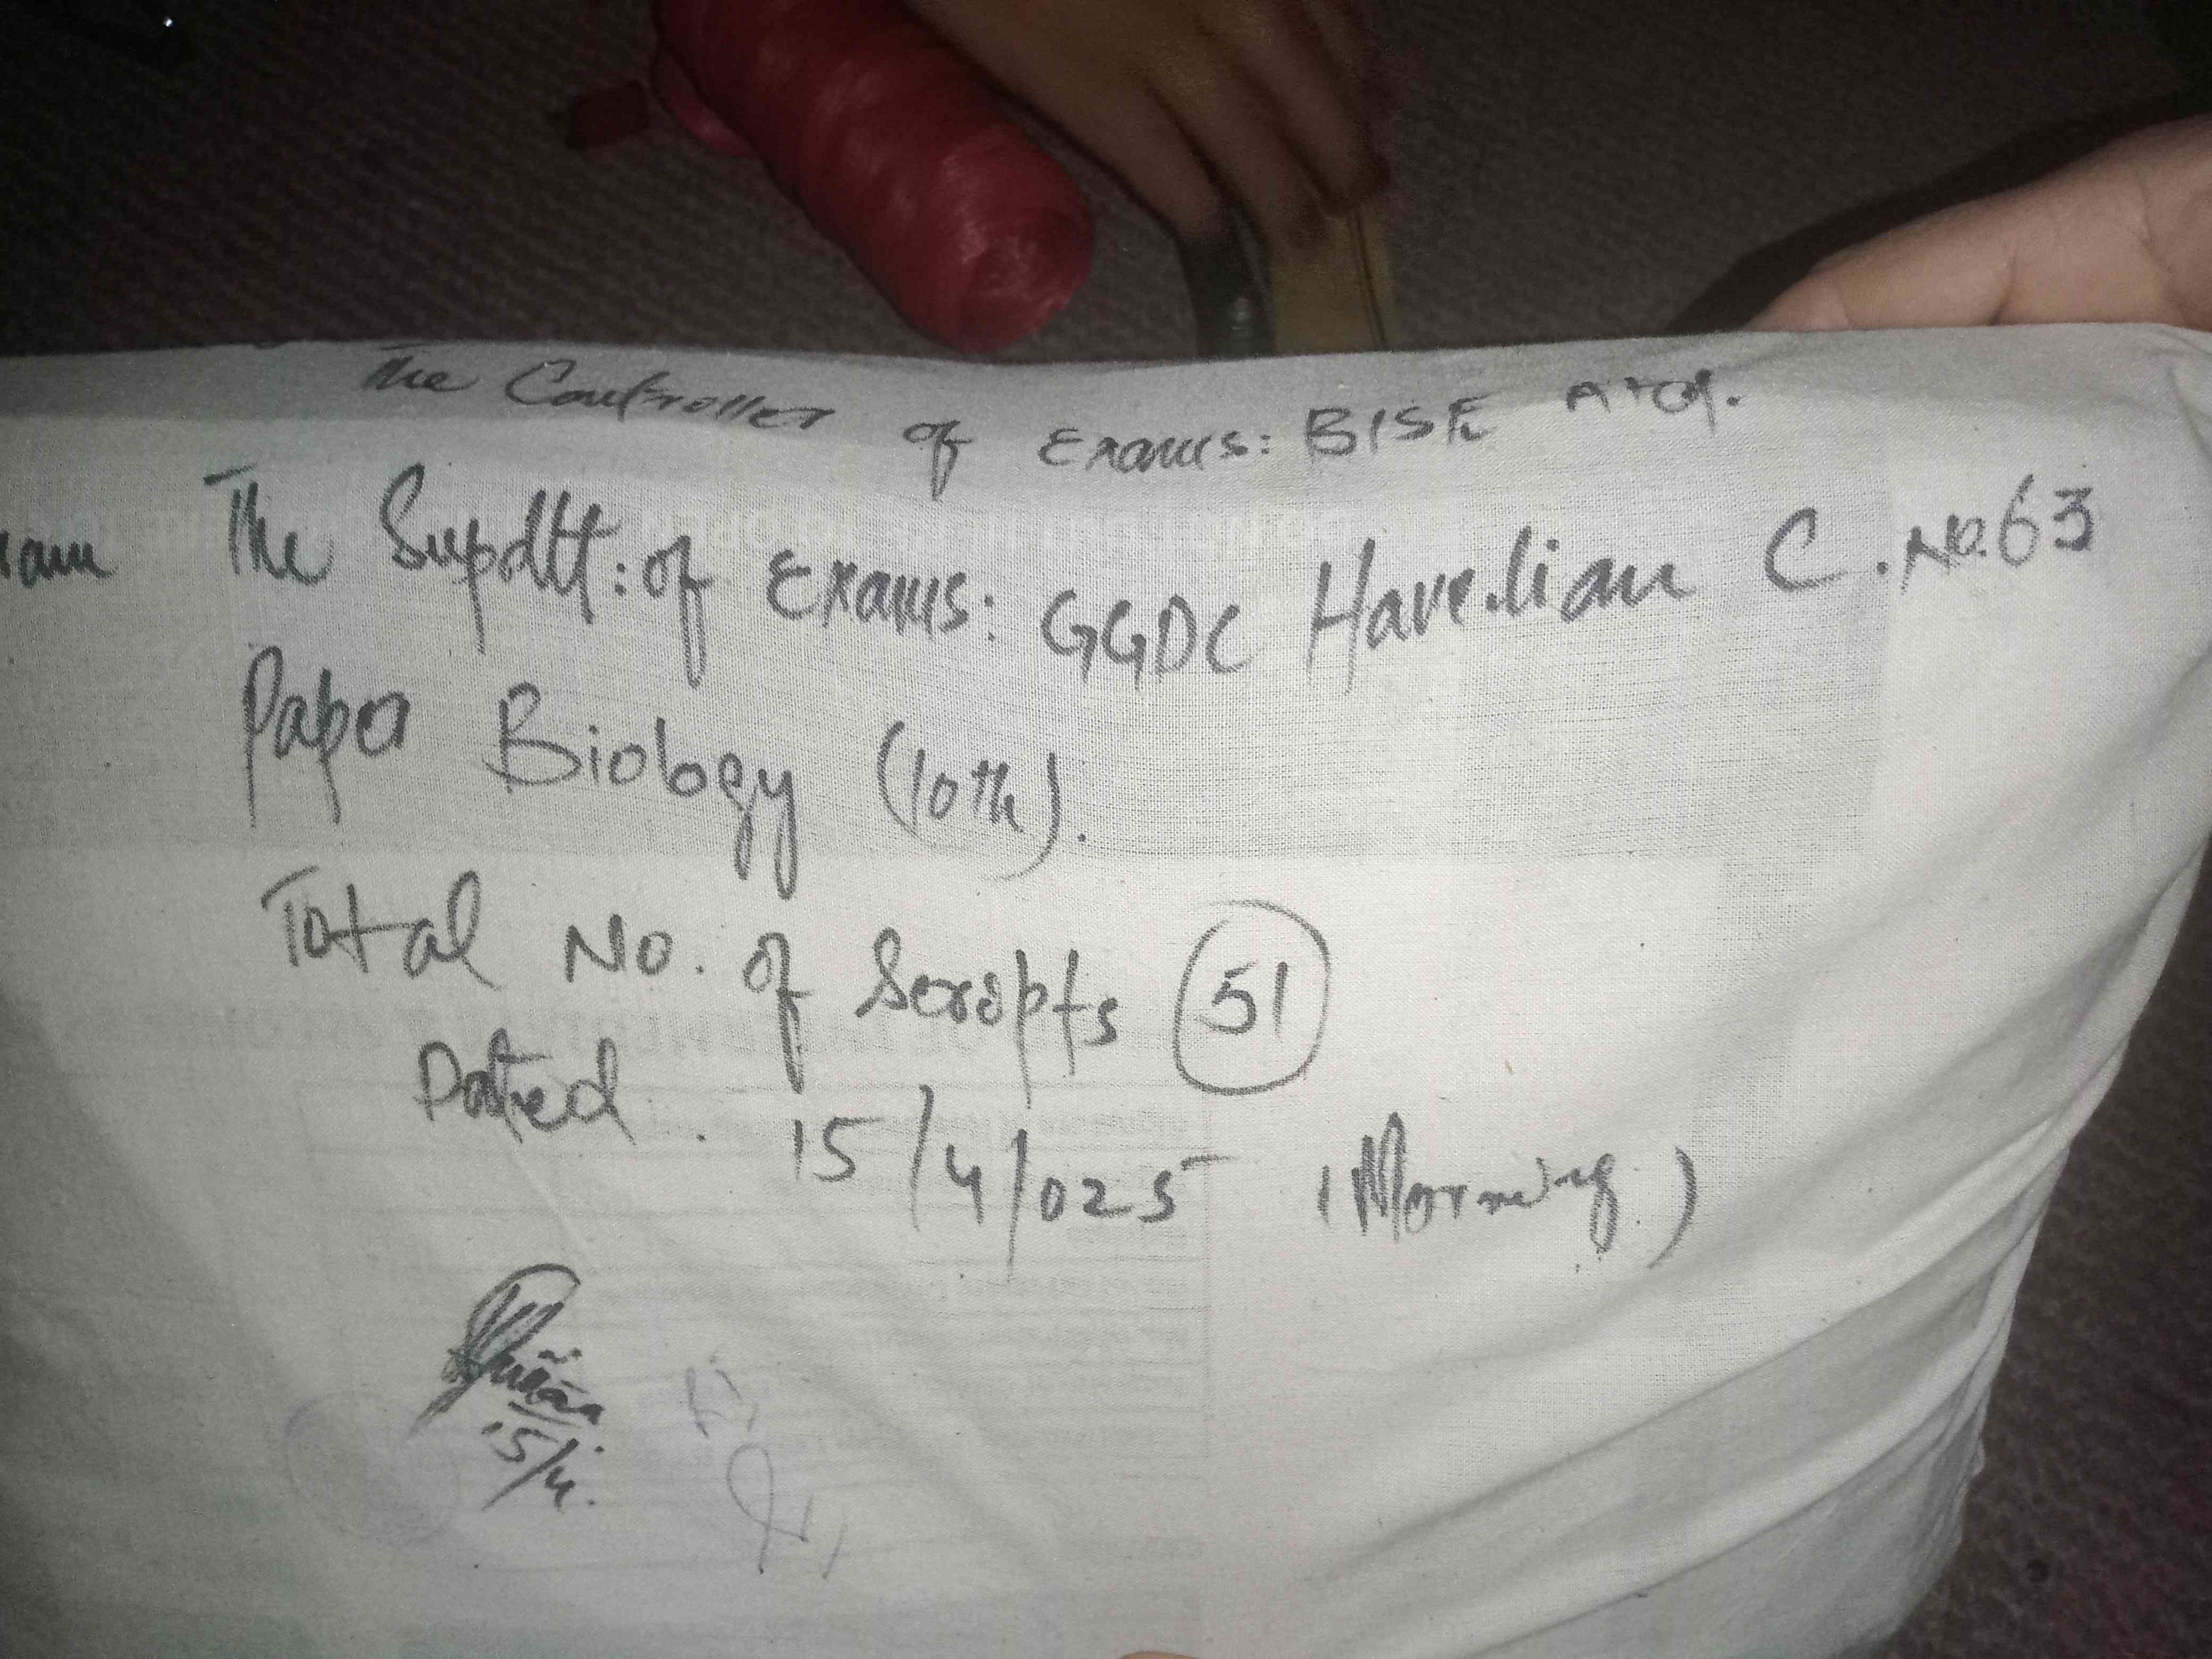 The Controller of Exams: BISE Atd.
The Supdtt: of Exams: GGDC Havelian C.No.63
Paper Biology (10th).
Total No. of Scripts 51
Dated. 15/4/025 (Morning)
15/4.